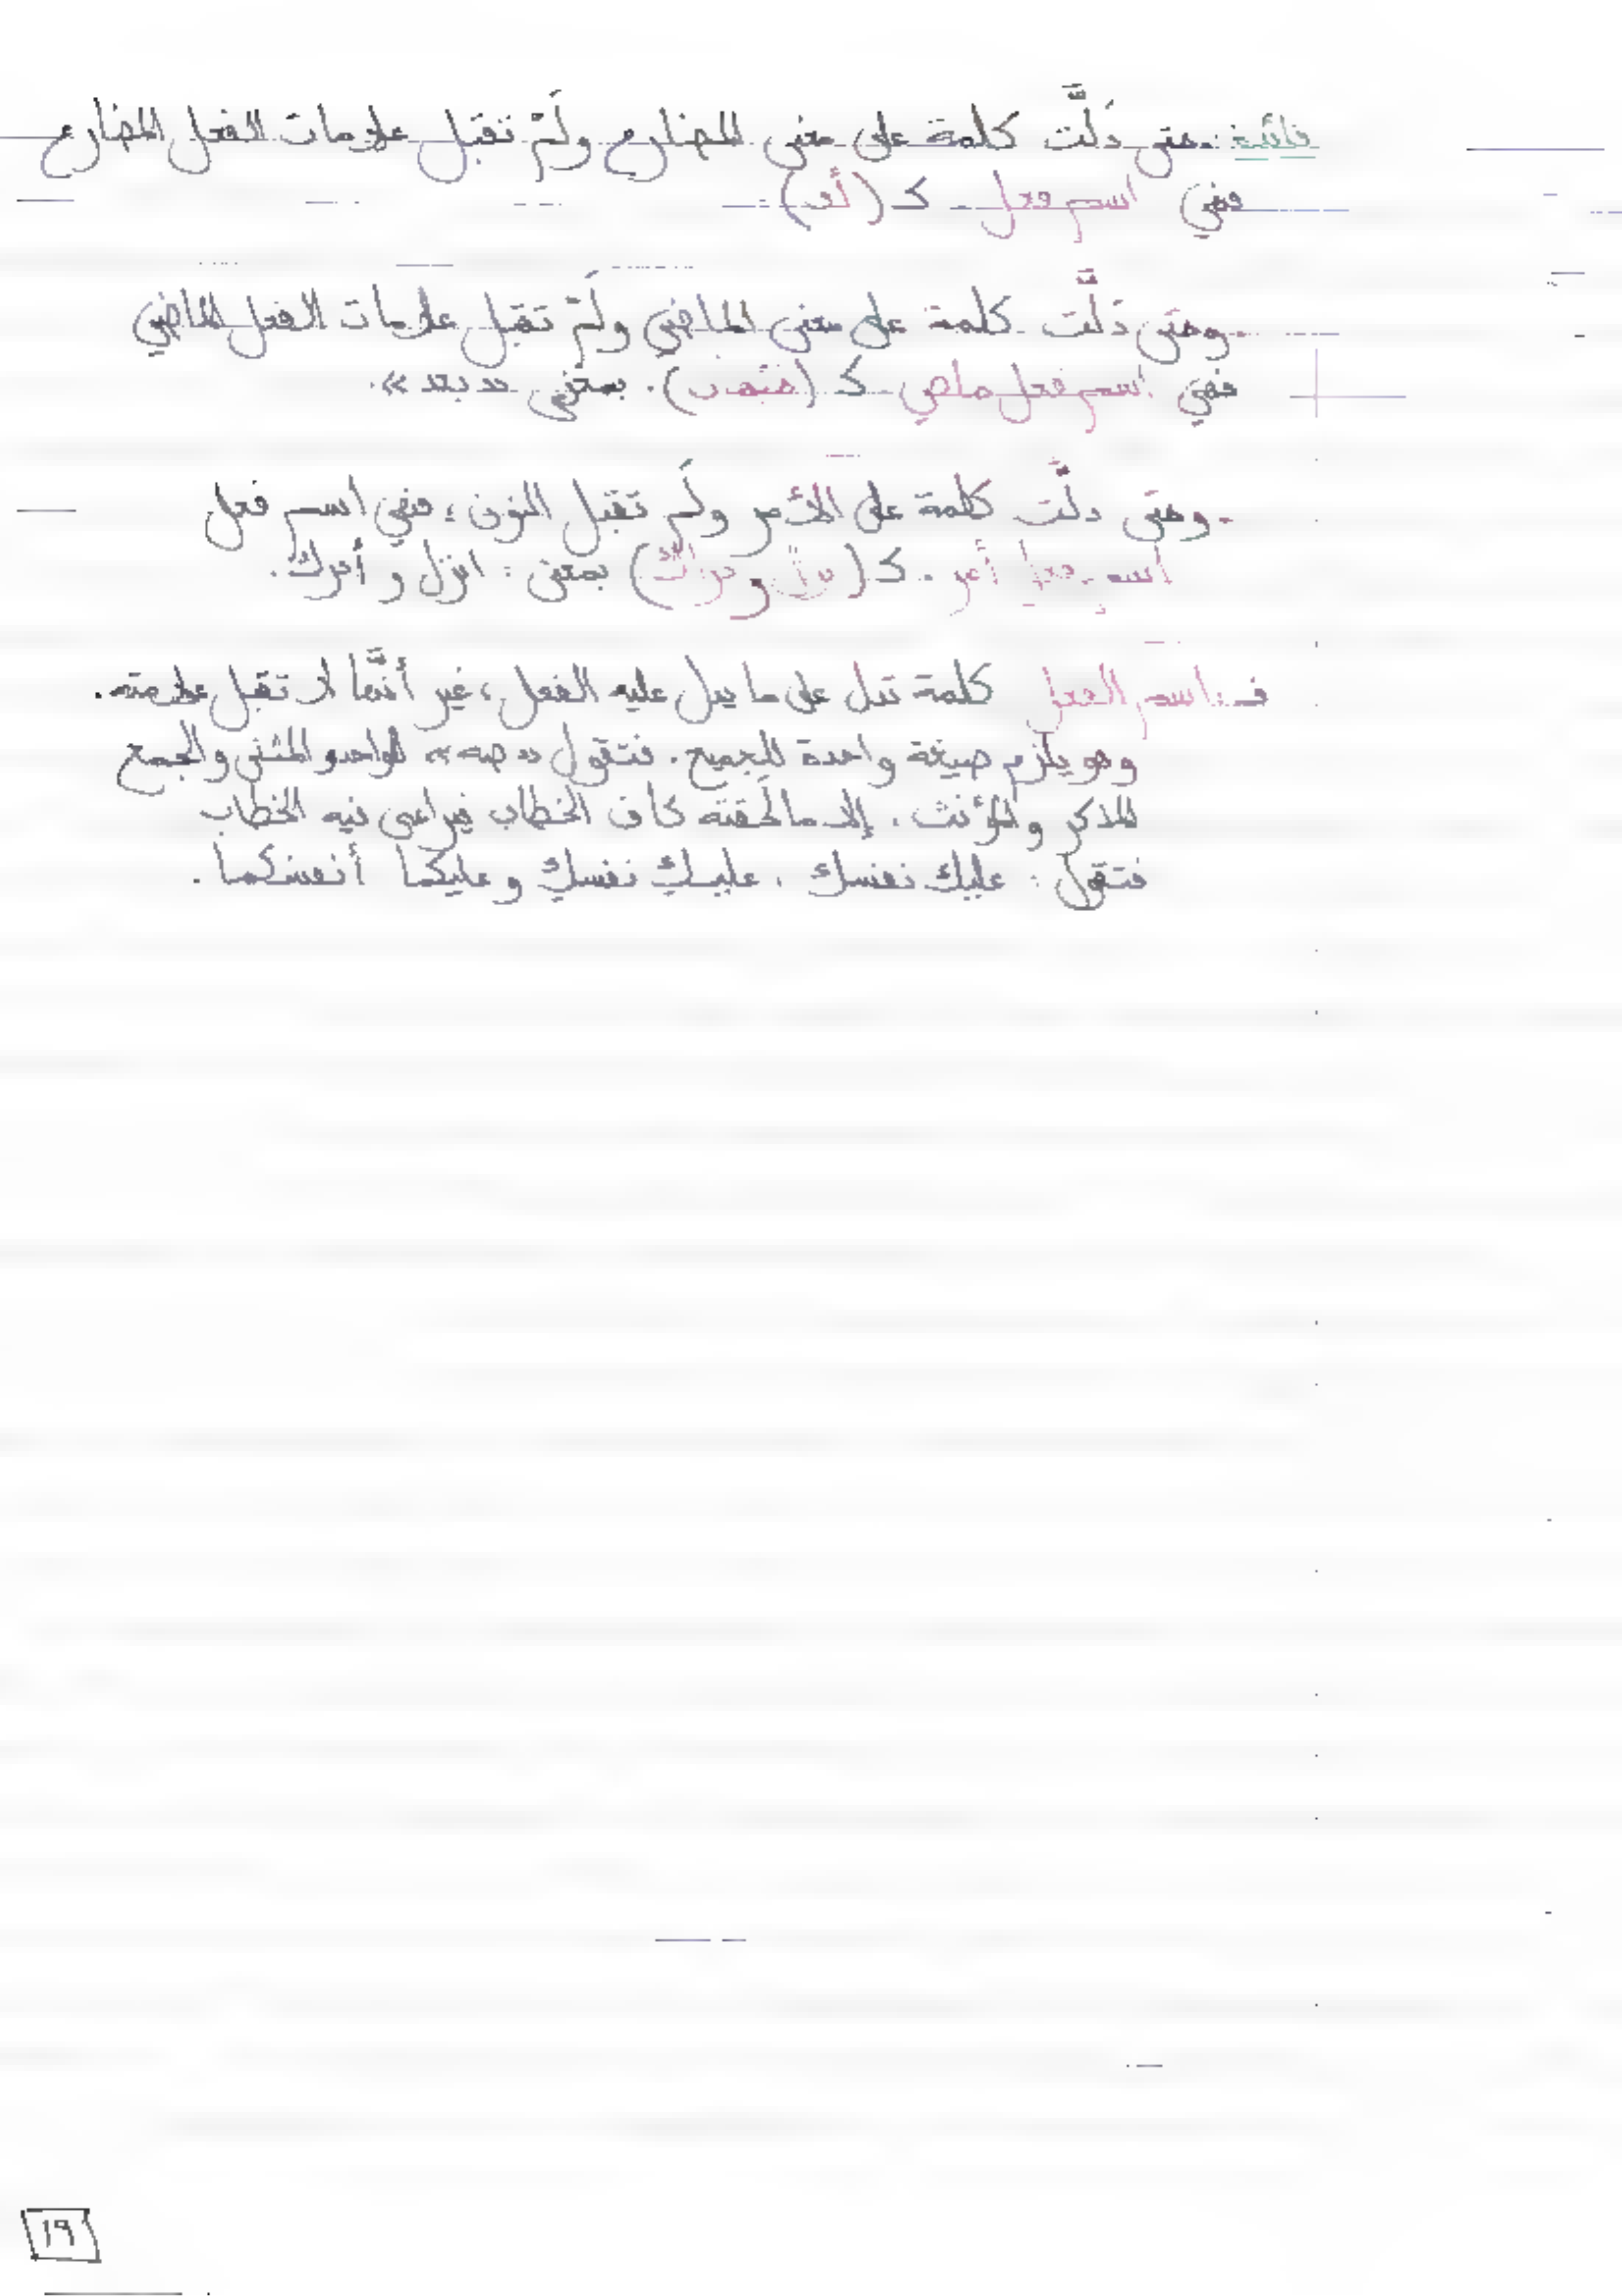 فائدة: متى دَلَّت كلمة على معنى المضارع ولَمْ تقبل علامات الفعل المضارع
فهي اسم فعل كـ (أف)
- ومتى دَلَّت كلمة على معنى الماضي ولَمْ تقبل علامات الفعل الماضي
فهي اسم فعل ماضي كـ (هيهات). بمعنى «بعد».
- ومتى دلَّت كلمة على الأمر ولَم تقبل النون؛ فهي اسم فعل
اسم فعل أمر. كـ (نزال ودراك) بمعنى: انزل و أدرك.
فـ: اسم الفعل كلمة تدل على ما يدل عليه الفعل، غير أنَّها لا تقبل علامته.
وهو يلزم صيغة واحدة للجميع. فتقول «صه» للواحد والمثنى والجمع
للمذكر والمؤنث. إلا ما لحَقته كاف الخطاب فيراعى فيه الخطاب
فتقول: عليك نفسك، عليكِ نفسكِ وعليكما أنفسكما.
١٩